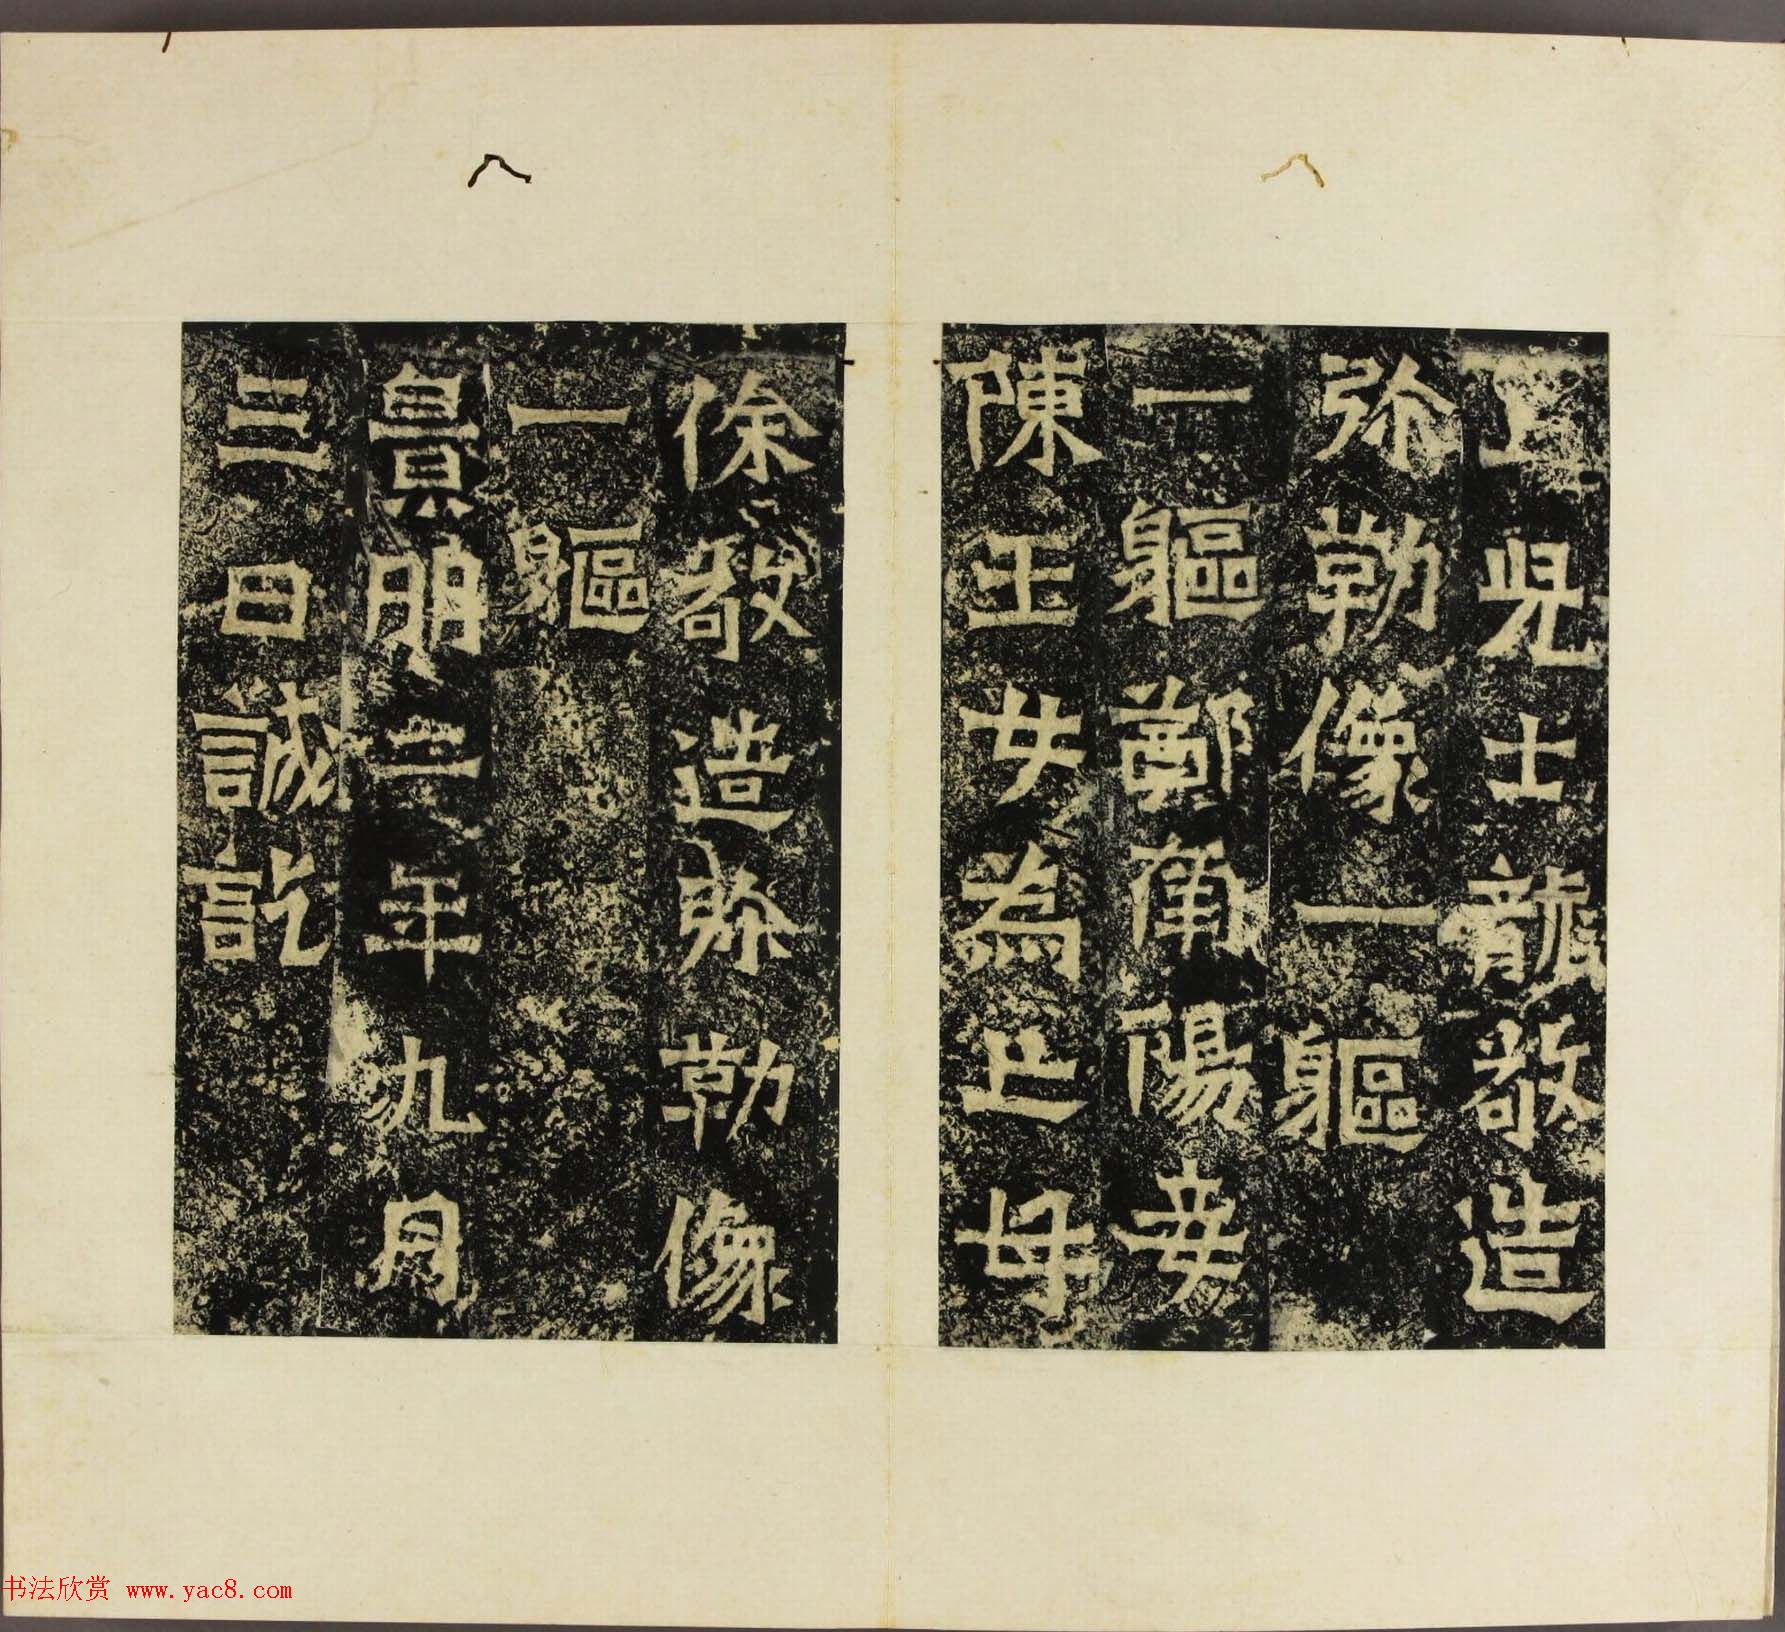 亡兒士龍敬造
弥勒像一軀
一軀鄭南陽妾
陳玉女為亡母
徐敬造弥勒像
一軀
景明二年九月
三日誡訖
书法欣赏 www.yac8.com